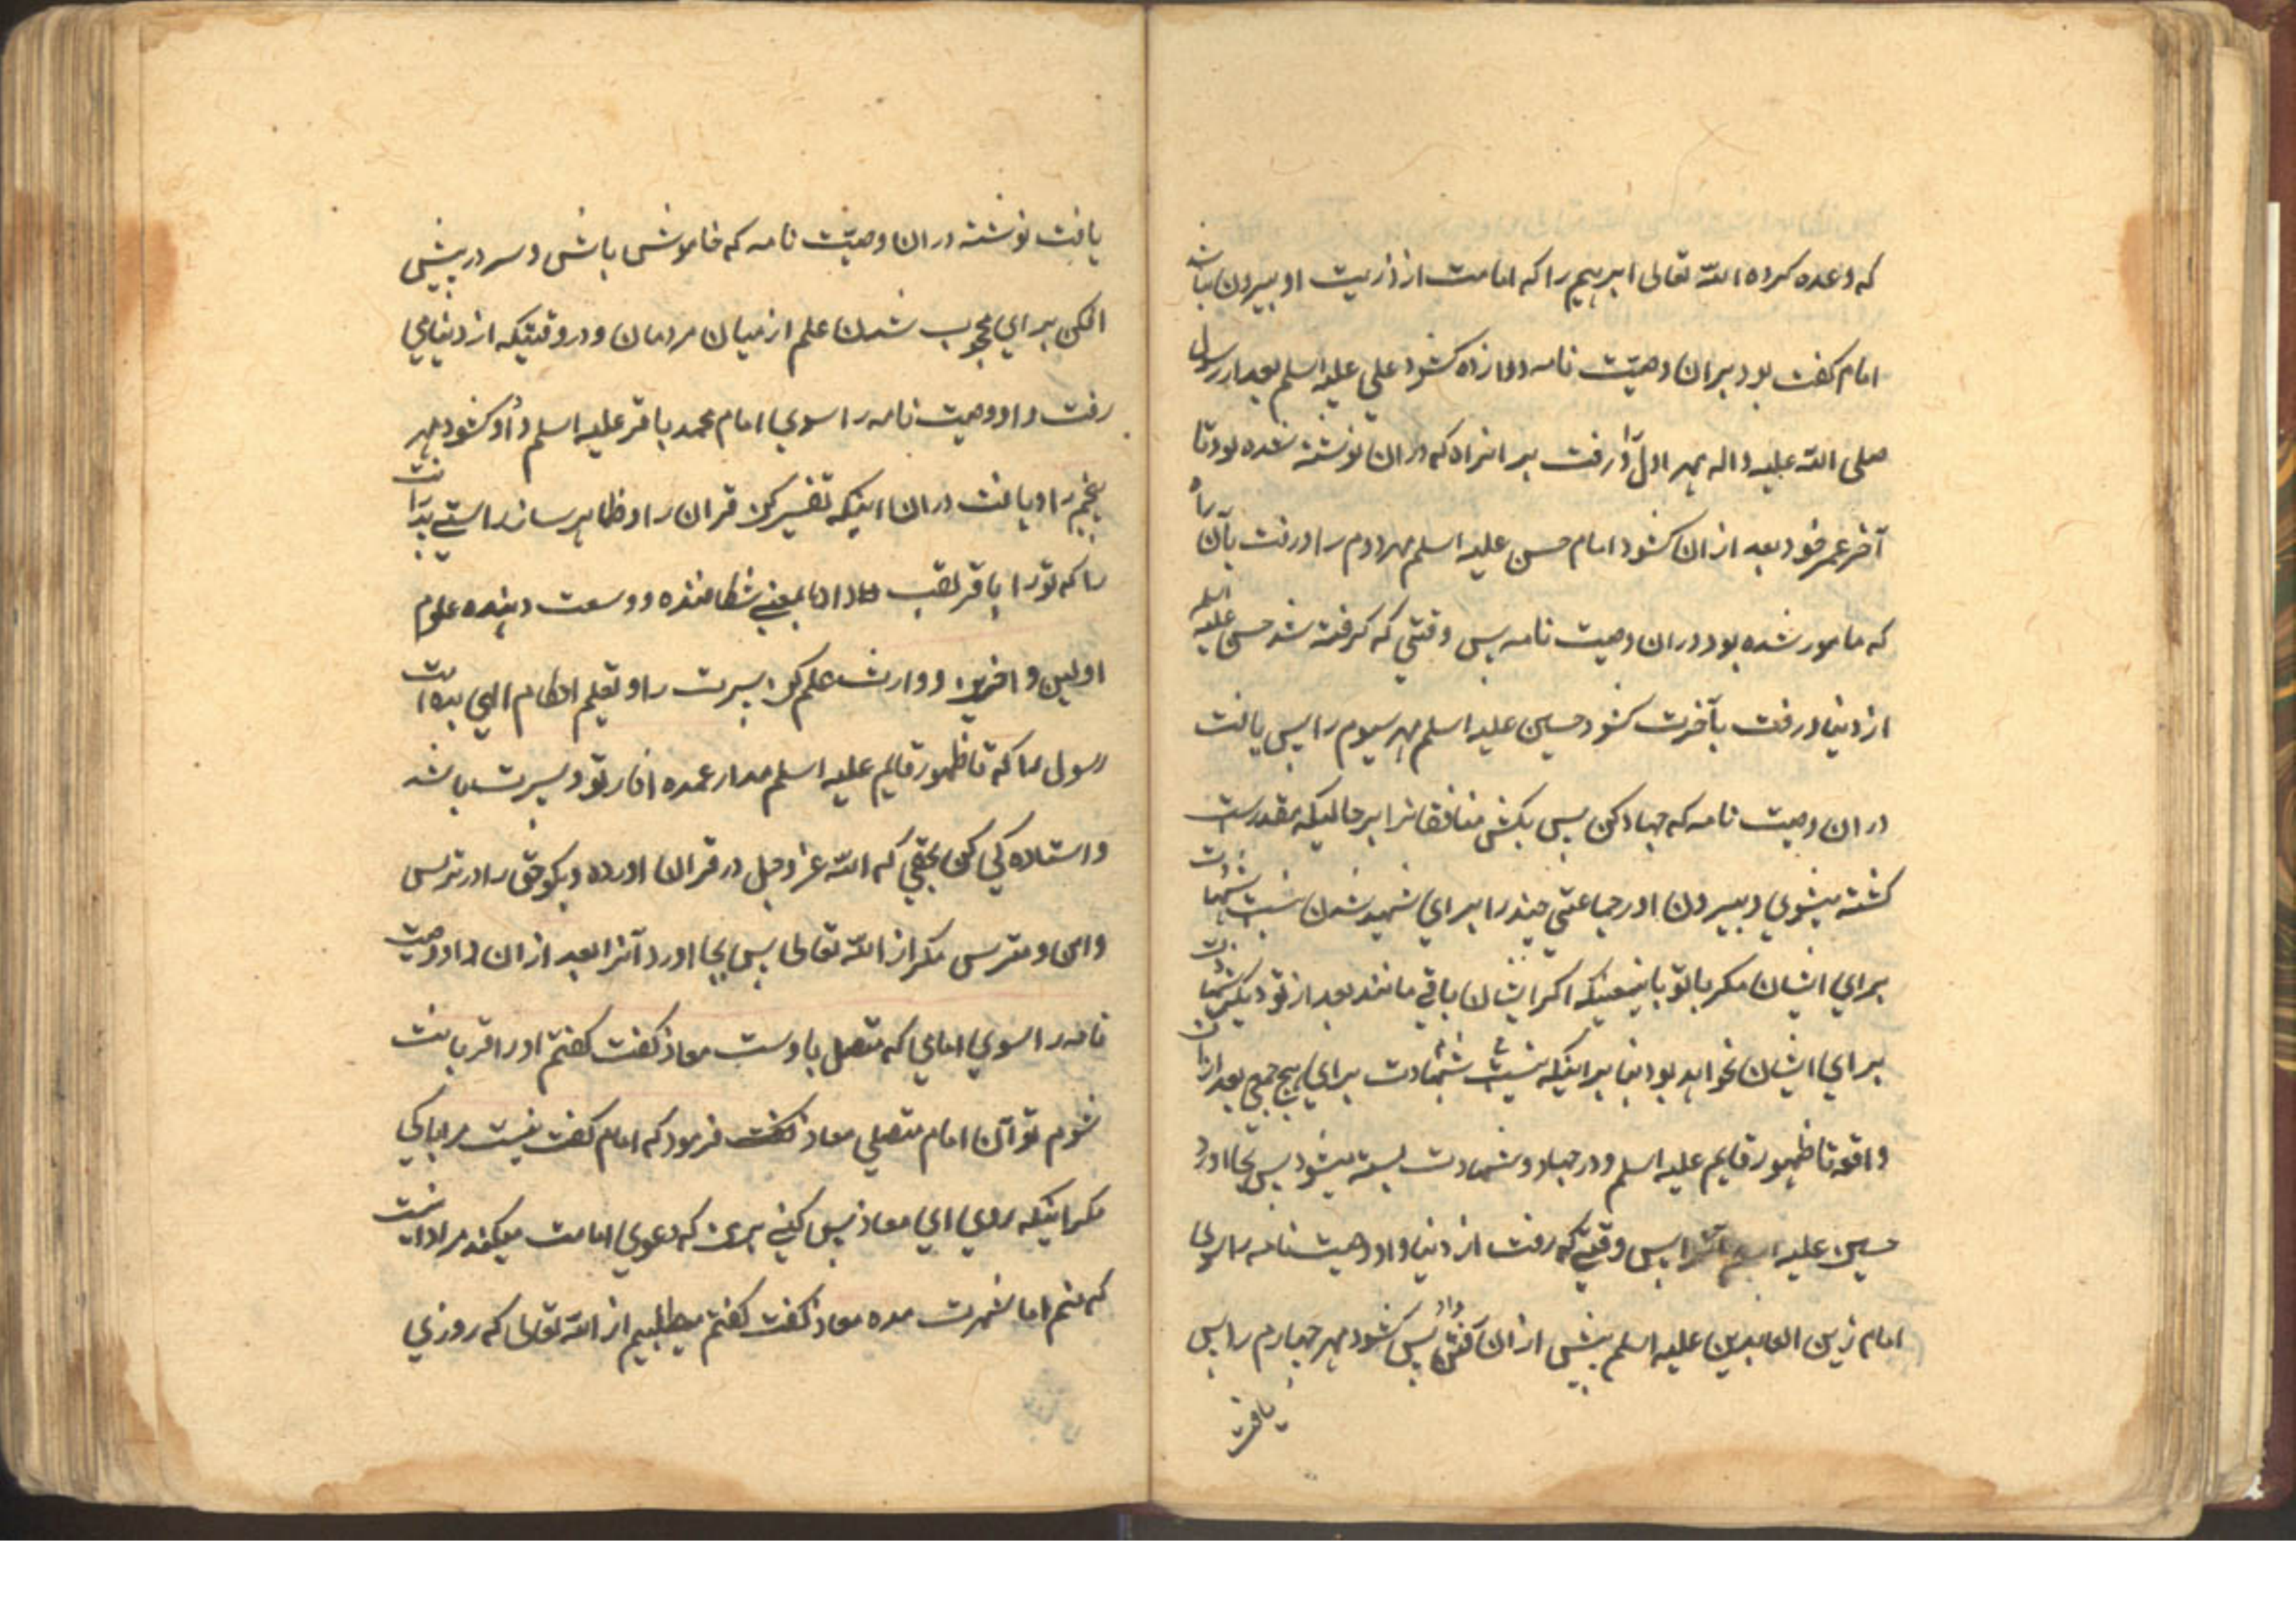 که وعده کرده الله تعالی ابرهیم را که امامت از ذریت او بیرون نباشد
امام کفت بود بران وصیّت نامه دوازده کشود علی علیه اسلم بعد از رسول
صلی الله علیه واله مهر اول را و رفت بر انراه که دران نوشته شده بود تا
آخر عمر خود بعد از ان کشود امام حسن علیه اسلم مهر دوم را و رفت بآن راه
که مامور شده بود دران وصیت نامه پس وقتی که کرفته شد حسن علیه اسلم
از دنیا و رفت بآخرت کشود حسین علیه اسلم مهر سیوم را پس یافت
دران وصیت نامه که جهاد کن پس بکش منافقانرا بر حالیکه بقدرست
کشته میشوی و بیرون اور جماعتی چند را برای شهید شدن نیست شهادت
برای ایشان مکر با تو باینمعنیکه اکر ایشان باقی مانند بعد از تو دیکر شهادت
برای ایشان نخواهد بود بنا بر اینکه نیست شهادت برای هیچ جمعی بعد ازان
واقعه تا ظهور قایم علیه اسلم و در جهاد و شهادت بسته میشود پس بجا اورد
حسین علیه اسلم آنرا پس وقتی که رفت از دنیا داد وصیت نامه را سوی
امام زین العابدین علیه اسلم پیش از ان رفتن پس کشود مهر چهارم را پس
یافت
یافت نوشته دران وصیّت نامه که خاموش باش و سر در پیش
افکن برای محجوب شدن علم از میان مردمان و در وقتیکه از دنیا می
رفت داد وصیت نامه را سوی امام محمد باقر علیه اسلم و او کشود مهر
پنجم را و یافت دران اینکه تفسیر کن قران را و ظاهر ساز راستی پدرانت
را که تو را باقر لقب داد ان بمعنی شکافنده و وسعت دهنده علوم
اولین و اخرین و وارث علم کن پسرت را و تعلیم احکام الهی بده امت
رسول را که تا ظهور قایم علیه اسلم مدار عمده انار تو و پسرت باشد
و استاده کی کن بحقی که الله عز وجل در قران اورده و بکو حق را در ترس
و امن و مترس مکر از الله تعالی پس بجا اورد آنرا بعد از ان داد وصیت
نامه را سوی امامی که متصل باوست معاذ کفت کفتم او را قربانت
شوم تو آن امام متصلی معاذ فرمود که امام کفت نیست مرا باکی
مکر اینکه روی ای معاذ پس کنی برمن که دعوی امامت میکند مراد انست
که منم اما شهرت مده معاذ کفت کفتم میطلبم از الله تعالی که روزی